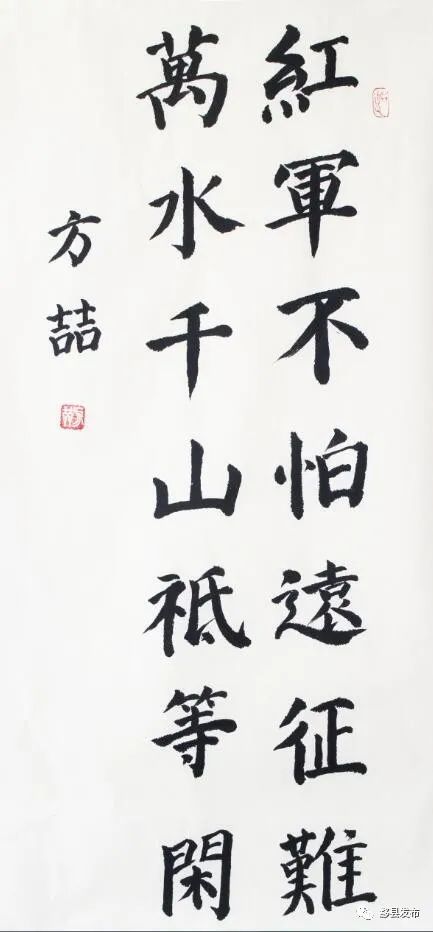 紅軍不怕遠征難
萬水千山祗等閑
方喆
黟县发布